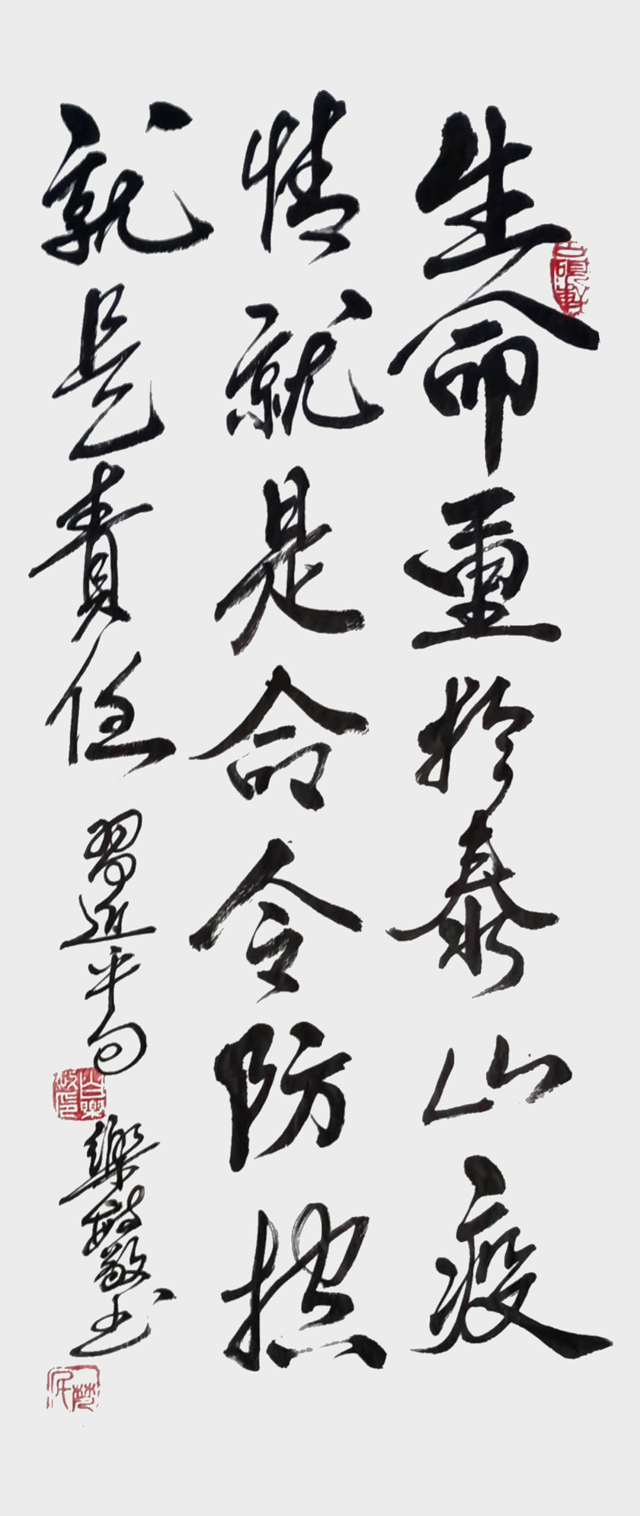 生命重於泰山疫
情就是命令防控
就是責任 習近平句 樂 敬书